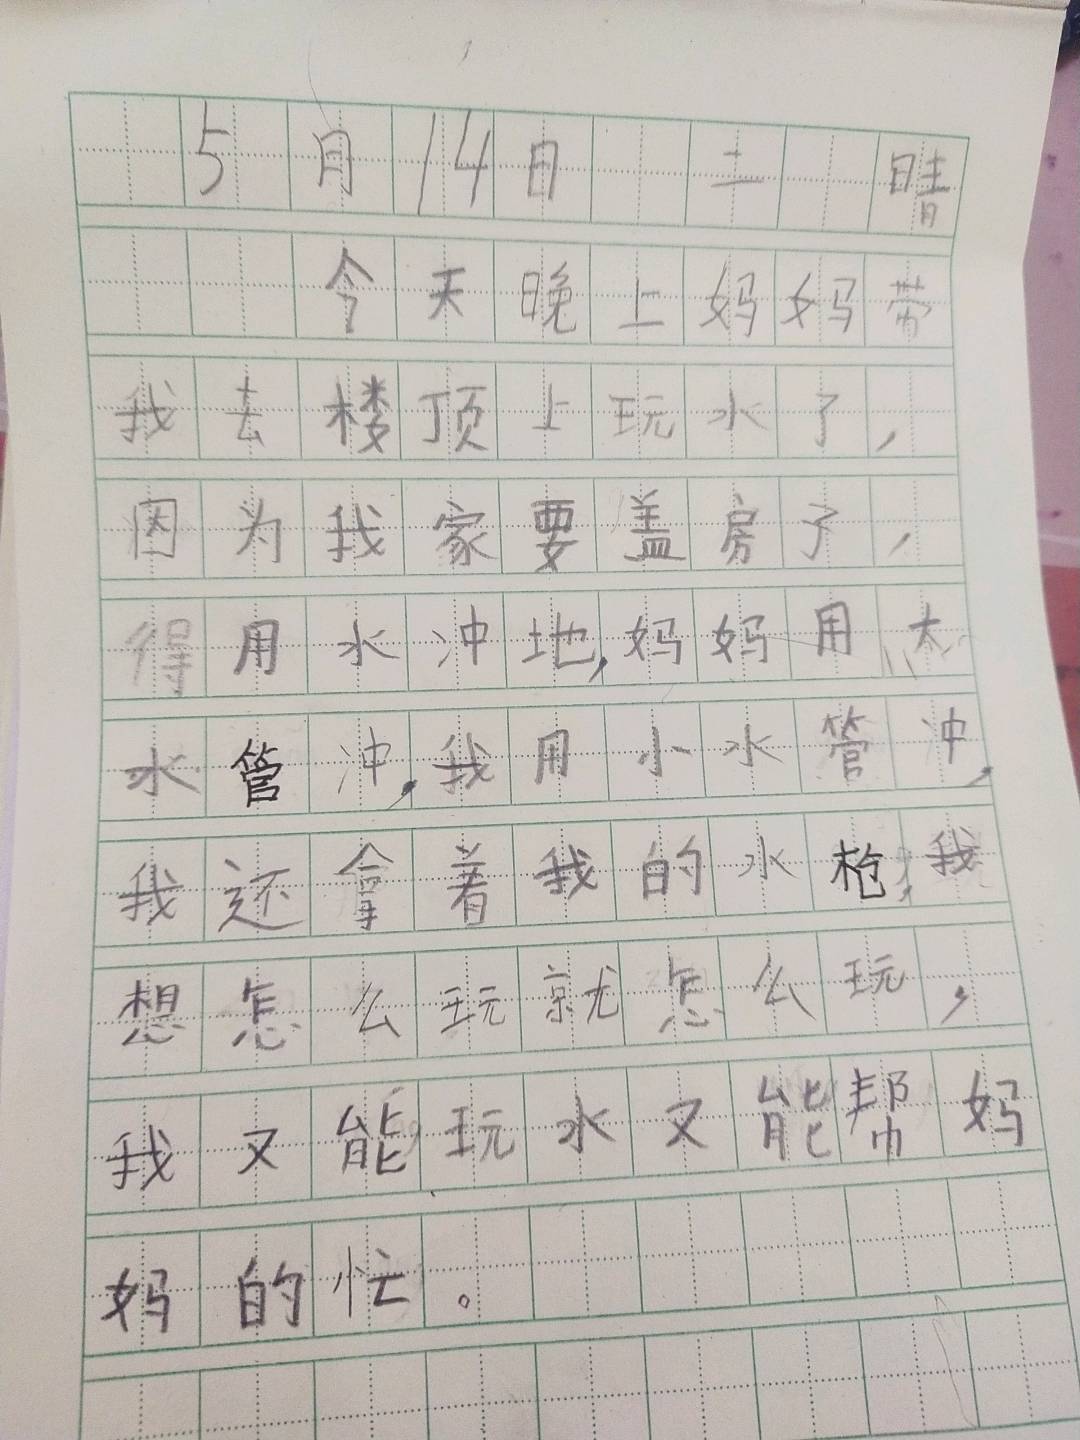 5月14日 二 晴
今天晚上妈妈带
我去楼顶上玩水了，
因为我家要盖房了，
得用水冲地，妈妈用大
水管冲，我用小水管冲，
我还拿着我的水枪，我
想怎么玩就怎么玩，
我又能玩水又能帮妈
妈的忙。